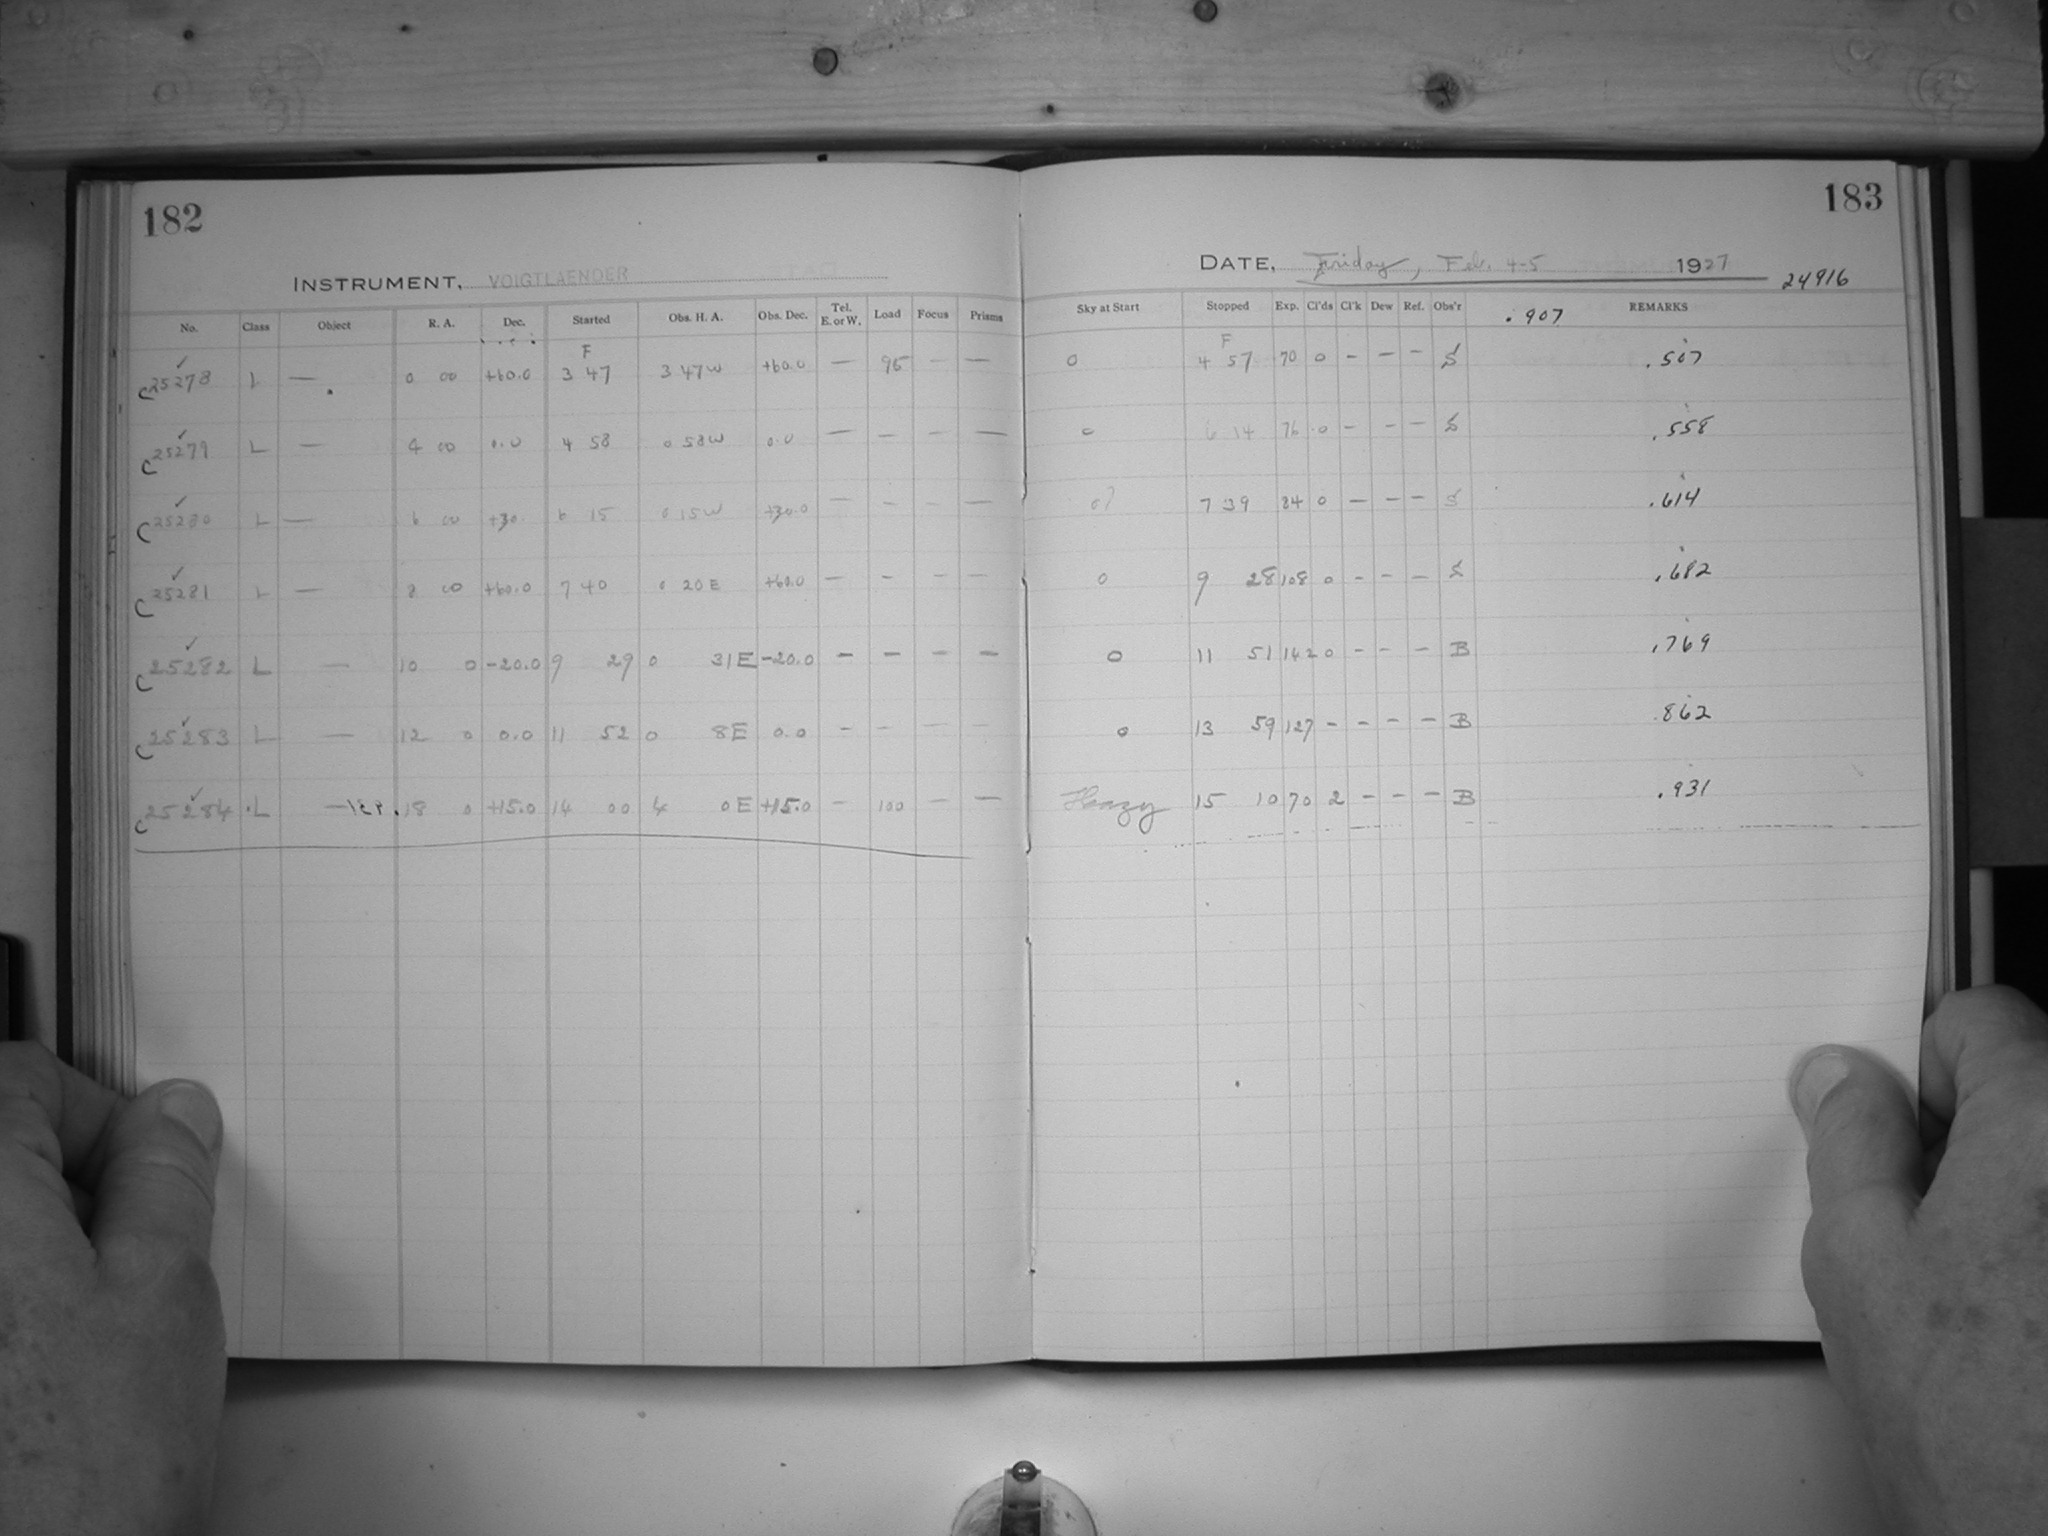 182
183
INSTRUMENT, VOIGTLAENDER
DATE, Friday, Feb. 4-5 1927
24916
No. Class Object R. A. Dec. Started Obs. H. A. Obs. Dec. Tel. E. or W. Load Focus Prisms Sky at Start Stopped Exp. Cl'ds Cl'k Dew Ref. Obs'r .907 REMARKS
F F
✓
C25278 L — 0 00 +60.0 3 47 3 47W +60.0 — 95 — — 0 4 57 70 0 – – – S .507
✓
C25279 L — 4 00 0.0 4 58 0 58W 0.0 — – – — 0 6 14 76 0 – – – S .558
✓
C25280 L — 6 00 +30. 6 15 0 15W +30.0 — – – — 0? 7 39 84 0 – – – S .614
✓
C25281 L — 8 00 +60.0 7 40 0 20E +60.0 — – – — 0 9 28 108 0 – – – S .682
✓
C25282 L — 10 0 -20.0 9 29 0 31E -20.0 – – – – 0 11 51 142 0 – – – B .769
✓
C25283 L — 12 0 0.0 11 52 0 8E 0.0 – – – – 0 13 59 127 – – – – B .862
✓
C25284 L — 18 0 +15.0 14 00 4 0E +15.0 – 100 – – Hazy 15 10 70 2 – – – B .931